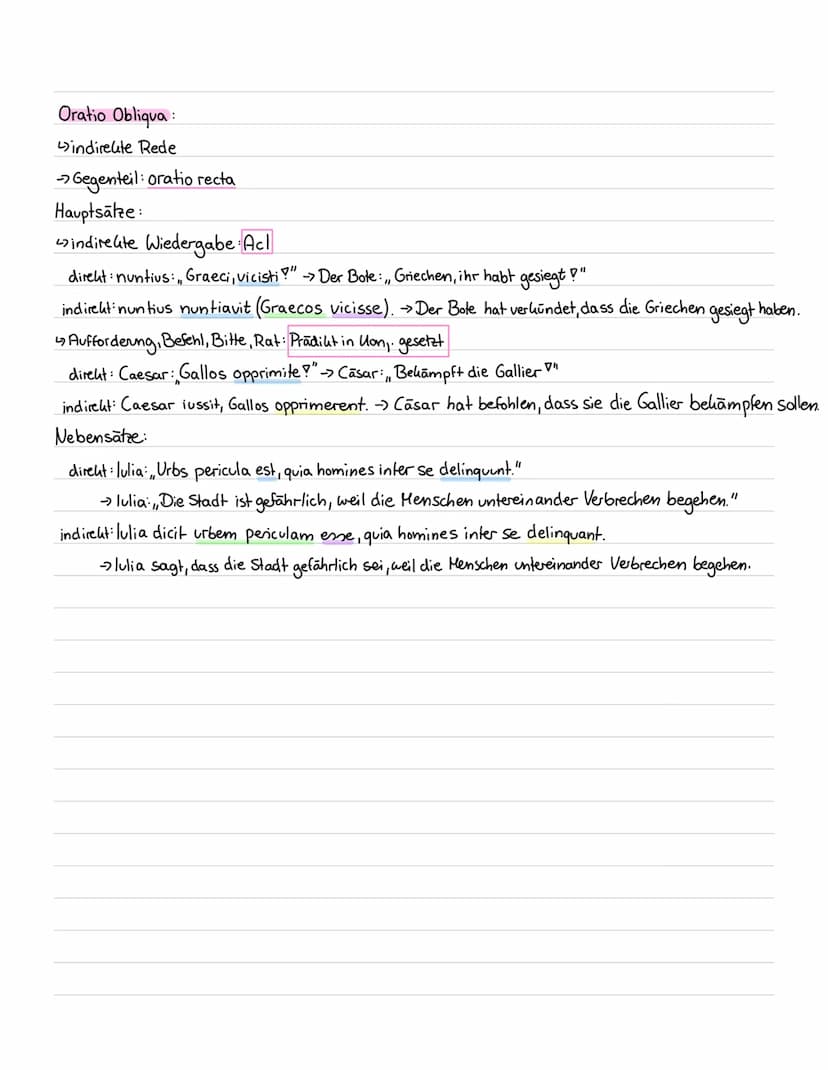 Oratio Obliqua:
↳indirekte Rede
→Gegenteil: oratio recta
Hauptsätze:
↳indirekte Wiedergabe: AcI
direkt: nuntius: „Graeci, vicisti!" → Der Bote: „Griechen, ihr habt gesiegt!"
indirekt: nuntius nuntiavit (Graecos vicisse). → Der Bote hat verkündet, dass die Griechen gesiegt haben.
↳Aufforderung, Befehl, Bitte, Rat: Prädikt in Konj. gesetzt
direkt: Caesar: „Gallos opprimite!" → Cäsar: „Bekämpft die Gallier!"
indirekt: Caesar iussit, Gallos opprimerent. → Cäsar hat befohlen, dass sie die Gallier bekämpfen sollen.
Nebensätze:
direkt: Iulia: „Urbs pericula est, quia homines inter se delinquunt."
→ Iulia: „Die Stadt ist gefährlich, weil die Menschen untereinander Verbrechen begehen."
indirekt: Iulia dicit urbem periculam esse, quia homines inter se delinquant.
→ Iulia sagt, dass die Stadt gefährlich sei, weil die Menschen untereinander Verbrechen begehen.